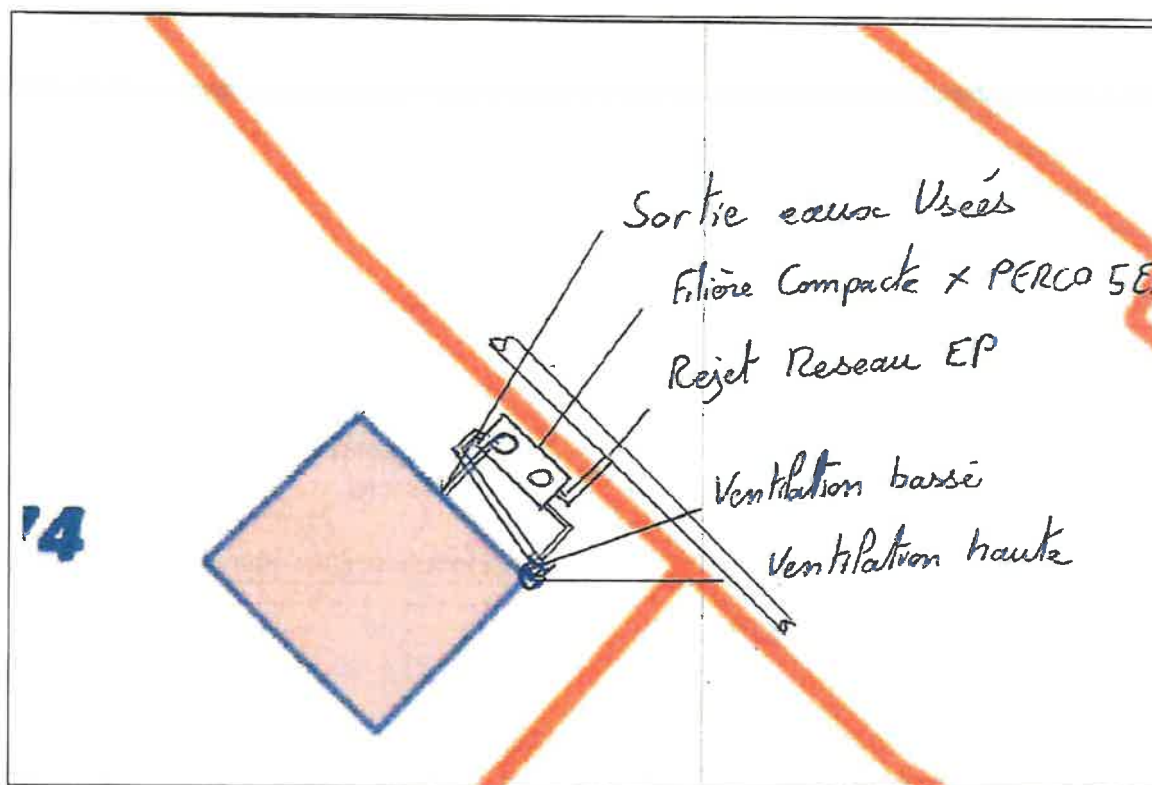 Sortie eaux Useés
Filière Compacte X PERCO 5E
Rejet Reseau EP
Ventilation bassé
Ventilation haute
74